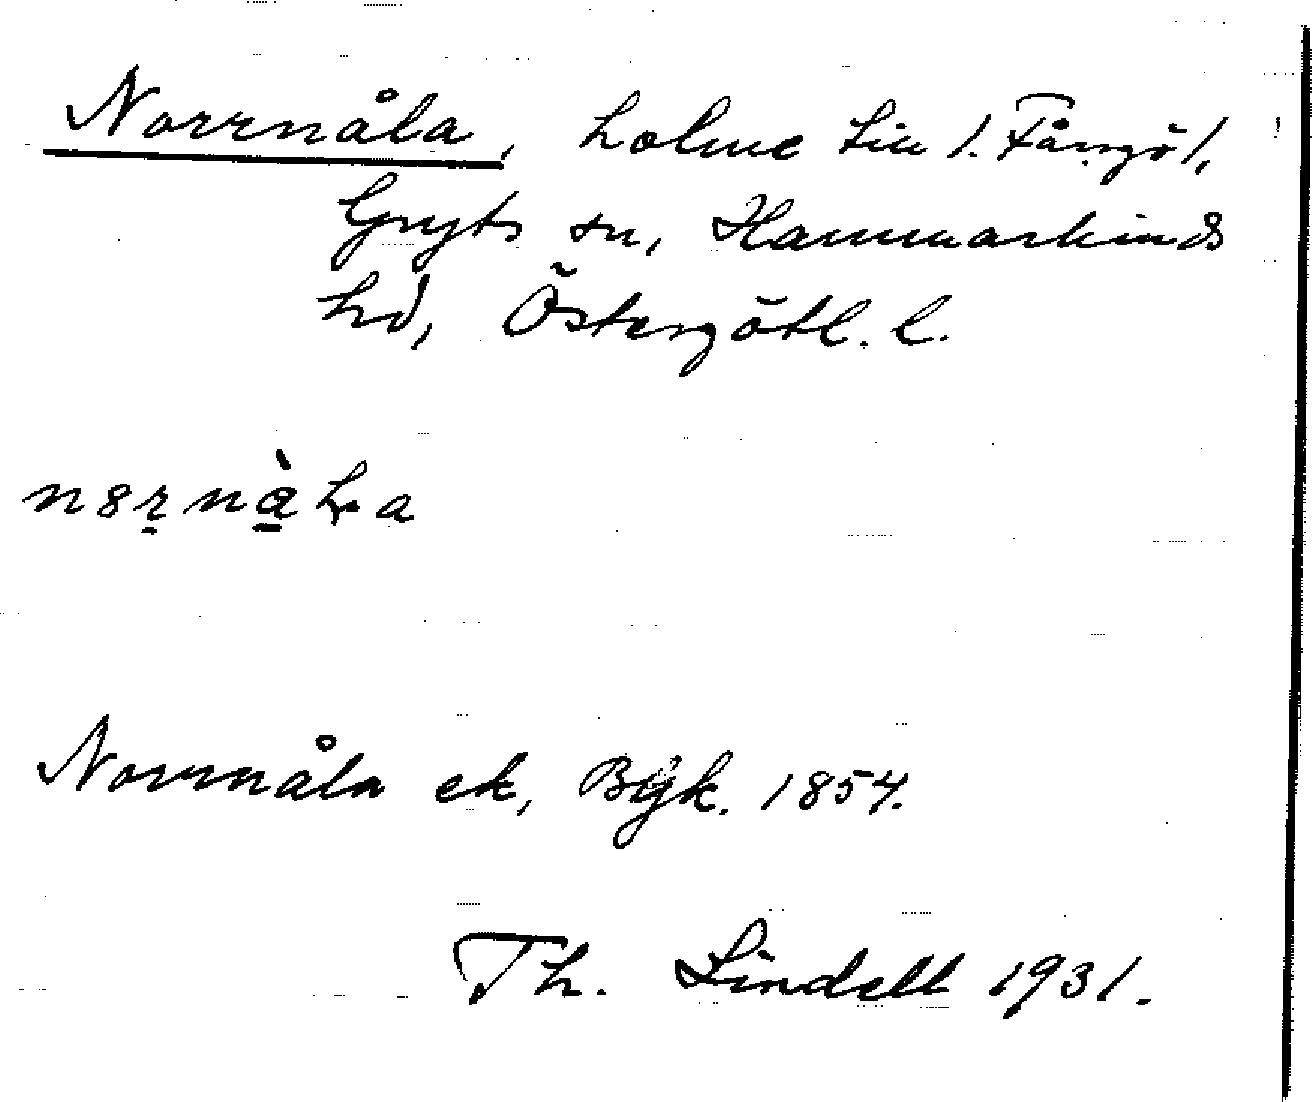 Norrnåla, holme till /. Fångö/,
Gryts sn, Hammarkinds
hd, Östergötl. l.
Norrnåla ek, Bgk. 1854.
Th. Lindell 1931.